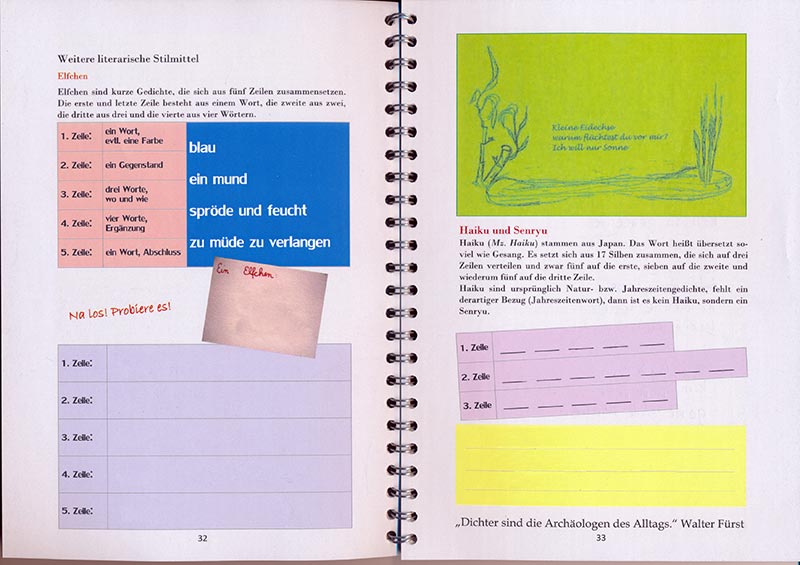 Weitere literarische Stilmittel
Elfchen
Elfchen sind kurze Gedichte, die sich aus fünf Zeilen zusammensetzen.
Die erste und letzte Zeile besteht aus einem Wort, die zweite aus zwei,
die dritte aus drei und die vierte aus vier Wörtern.
1. Zeile: ein Wort,
evtl. eine Farbe
2. Zeile: ein Gegenstand
3. Zeile: drei Worte,
wo und wie
4. Zeile: vier Worte,
Ergänzung
5. Zeile: ein Wort, Abschluss
blau
ein mund
spröde und feucht
zu müde zu verlangen
Ein Elfchen
Na los! Probiere es!
1. Zeile:
2. Zeile:
3. Zeile:
4. Zeile:
5. Zeile:
32
Kleine Eidechse
warum flüchtest du vor mir?
Ich will nur Sonne
Haiku und Senryu
Haiku (Mz. Haiku) stammen aus Japan. Das Wort heißt übersetzt so-
viel wie Gesang. Es setzt sich aus 17 Silben zusammen, die sich auf drei
Zeilen verteilen und zwar fünf auf die erste, sieben auf die zweite und
wiederum fünf auf die dritte Zeile.
Haiku sind ursprünglich Natur- bzw. Jahreszeitengedichte, fehlt ein
derartiger Bezug (Jahreszeitenwort), dann ist es kein Haiku, sondern ein
Senryu.
1. Zeile
2. Zeile
3. Zeile
„Dichter sind die Archäologen des Alltags.“ Walter Fürst
33